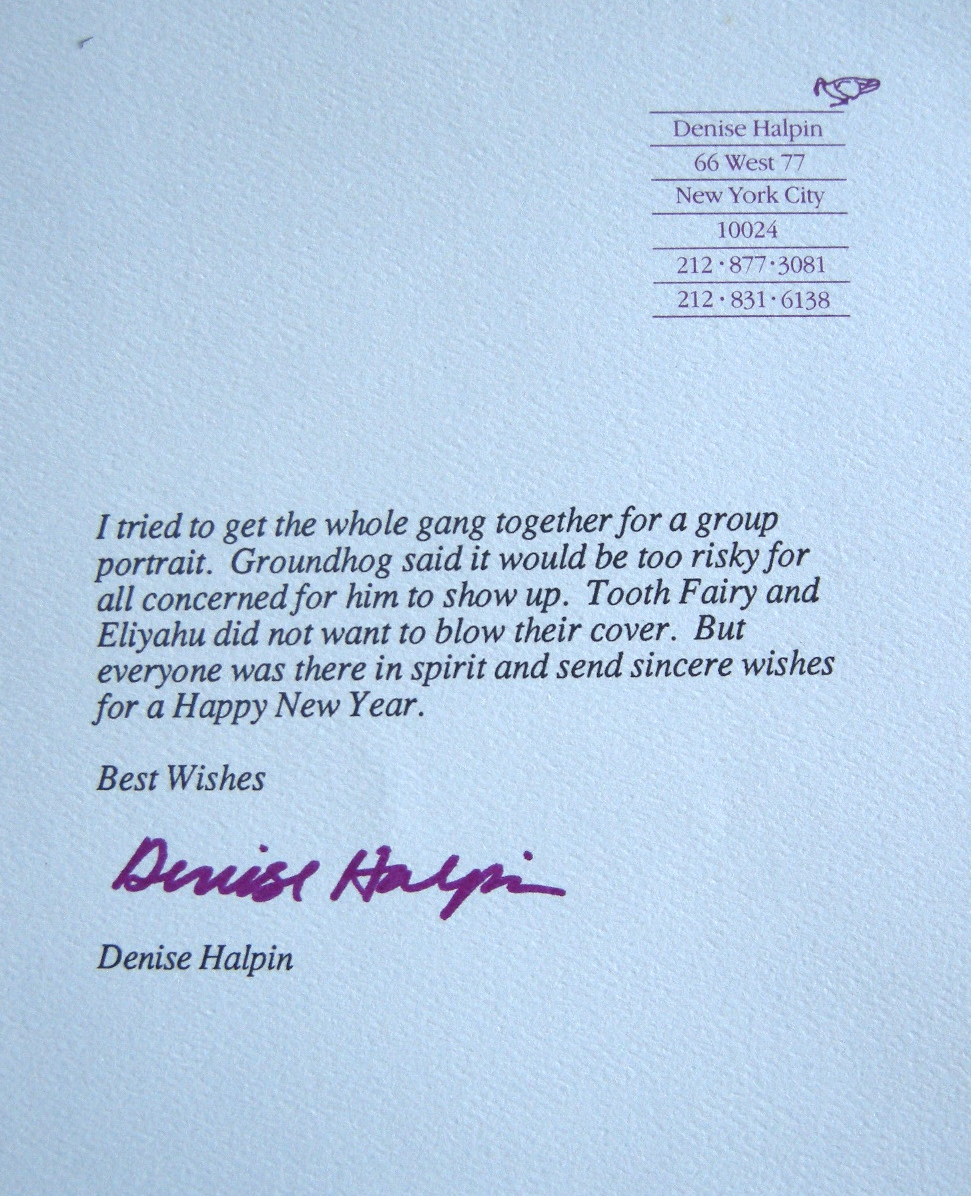 Denise Halpin
66 West 77
New York City
10024
212·877·3081
212·831·6138
I tried to get the whole gang together for a group
portrait.  Groundhog said it would be too risky for
all concerned for him to show up.  Tooth Fairy and
Eliyahu did not want to blow their cover.  But
everyone was there in spirit and send sincere wishes
for a Happy New Year.
Best Wishes
Denise Halpin
Denise Halpin